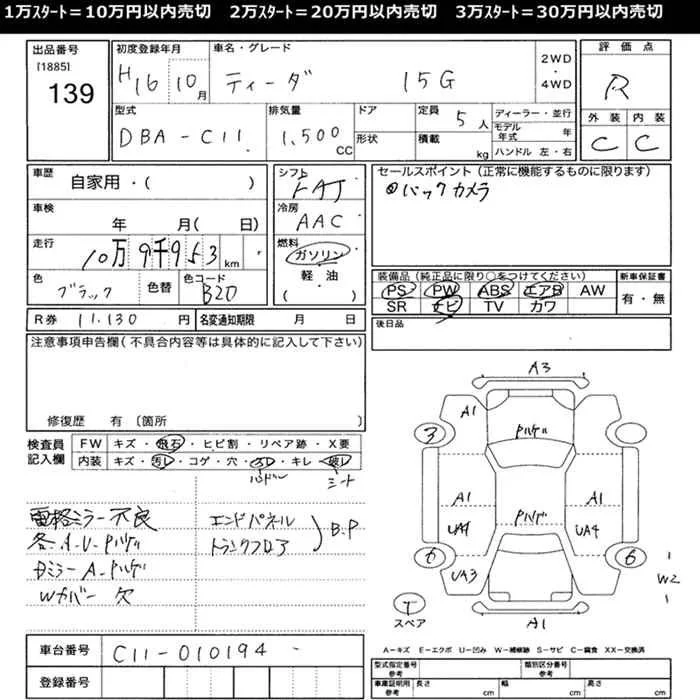 1万ｽﾀｰﾄ＝10万円以内売切 2万ｽﾀｰﾄ＝20万円以内売切 3万ｽﾀｰﾄ＝30万円以内売切
出品番号
[1885]
139
初度登録年月
H16 10月
車名・グレード
ティーダ 15G
2WD
・
4WD
評価点
R
外装 内装
C C
型式
DBA-C11
排気量
1,500 CC
ドア
形状
定員 5人
積載 kg
ディーラー・並行
モデル年式 年
ハンドル 左・右
車歴
自家用・( )
シフト
FAT
車検
年 月( 日)
冷房
AAC
走行
10万9千953 km
燃料
ガソリン
・
軽・油
( )
色
ブラック
色替
色コード
B20
R券 11,130 円
名変通知期限 月 日
セールスポイント (正常に機能するものに限ります)
バックカメラ
装備品 (純正品に限り○をつけてください)
PS PW ABS エアB AW
SR ナビ TV カワ
新車保証書
有・無
後日品
注意事項申告欄 (不具合内容等は具体的に記入して下さい)
修復歴 有 〔箇所 〕
検査員
記入欄
FW キズ・飛石・ヒビ割・リペア跡・X要
内装 キズ・汚レ・コゲ・穴・スレ・キレ・破レ
ハンドル シート
電格ミラー不良
各A・U・ﾊﾝｹﾞ
DミラーA・ﾊﾝｹﾞ
Wカバー欠
エンドパネル
トランクフロア
B.P
A3
A1
3
A1
A1
UA4
UA3
6
W2
A1
T
スペア
A−キズ E−エクボ U−凹み W−補修跡 S−サビ C−腐食 XX−交換済
車台番号 C11-010194
登録番号
型式指定番号
参考
類別区分番号
参考
車庫証明用
参考
長さ cm
幅 cm
高さ cm